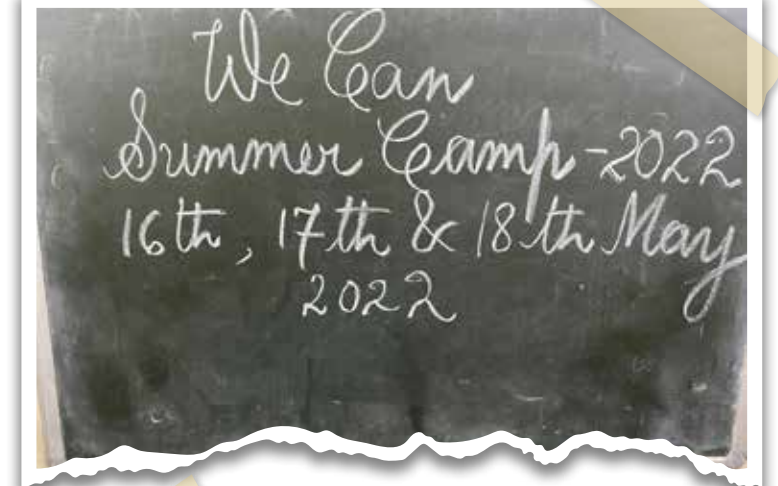 We Can
Summer Camp-2022
16th, 17th & 18th May
2022